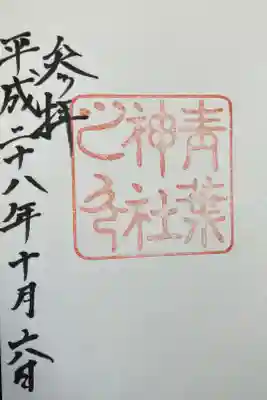 青葉
神社
之印
奉拝
平成二十八年十月六日